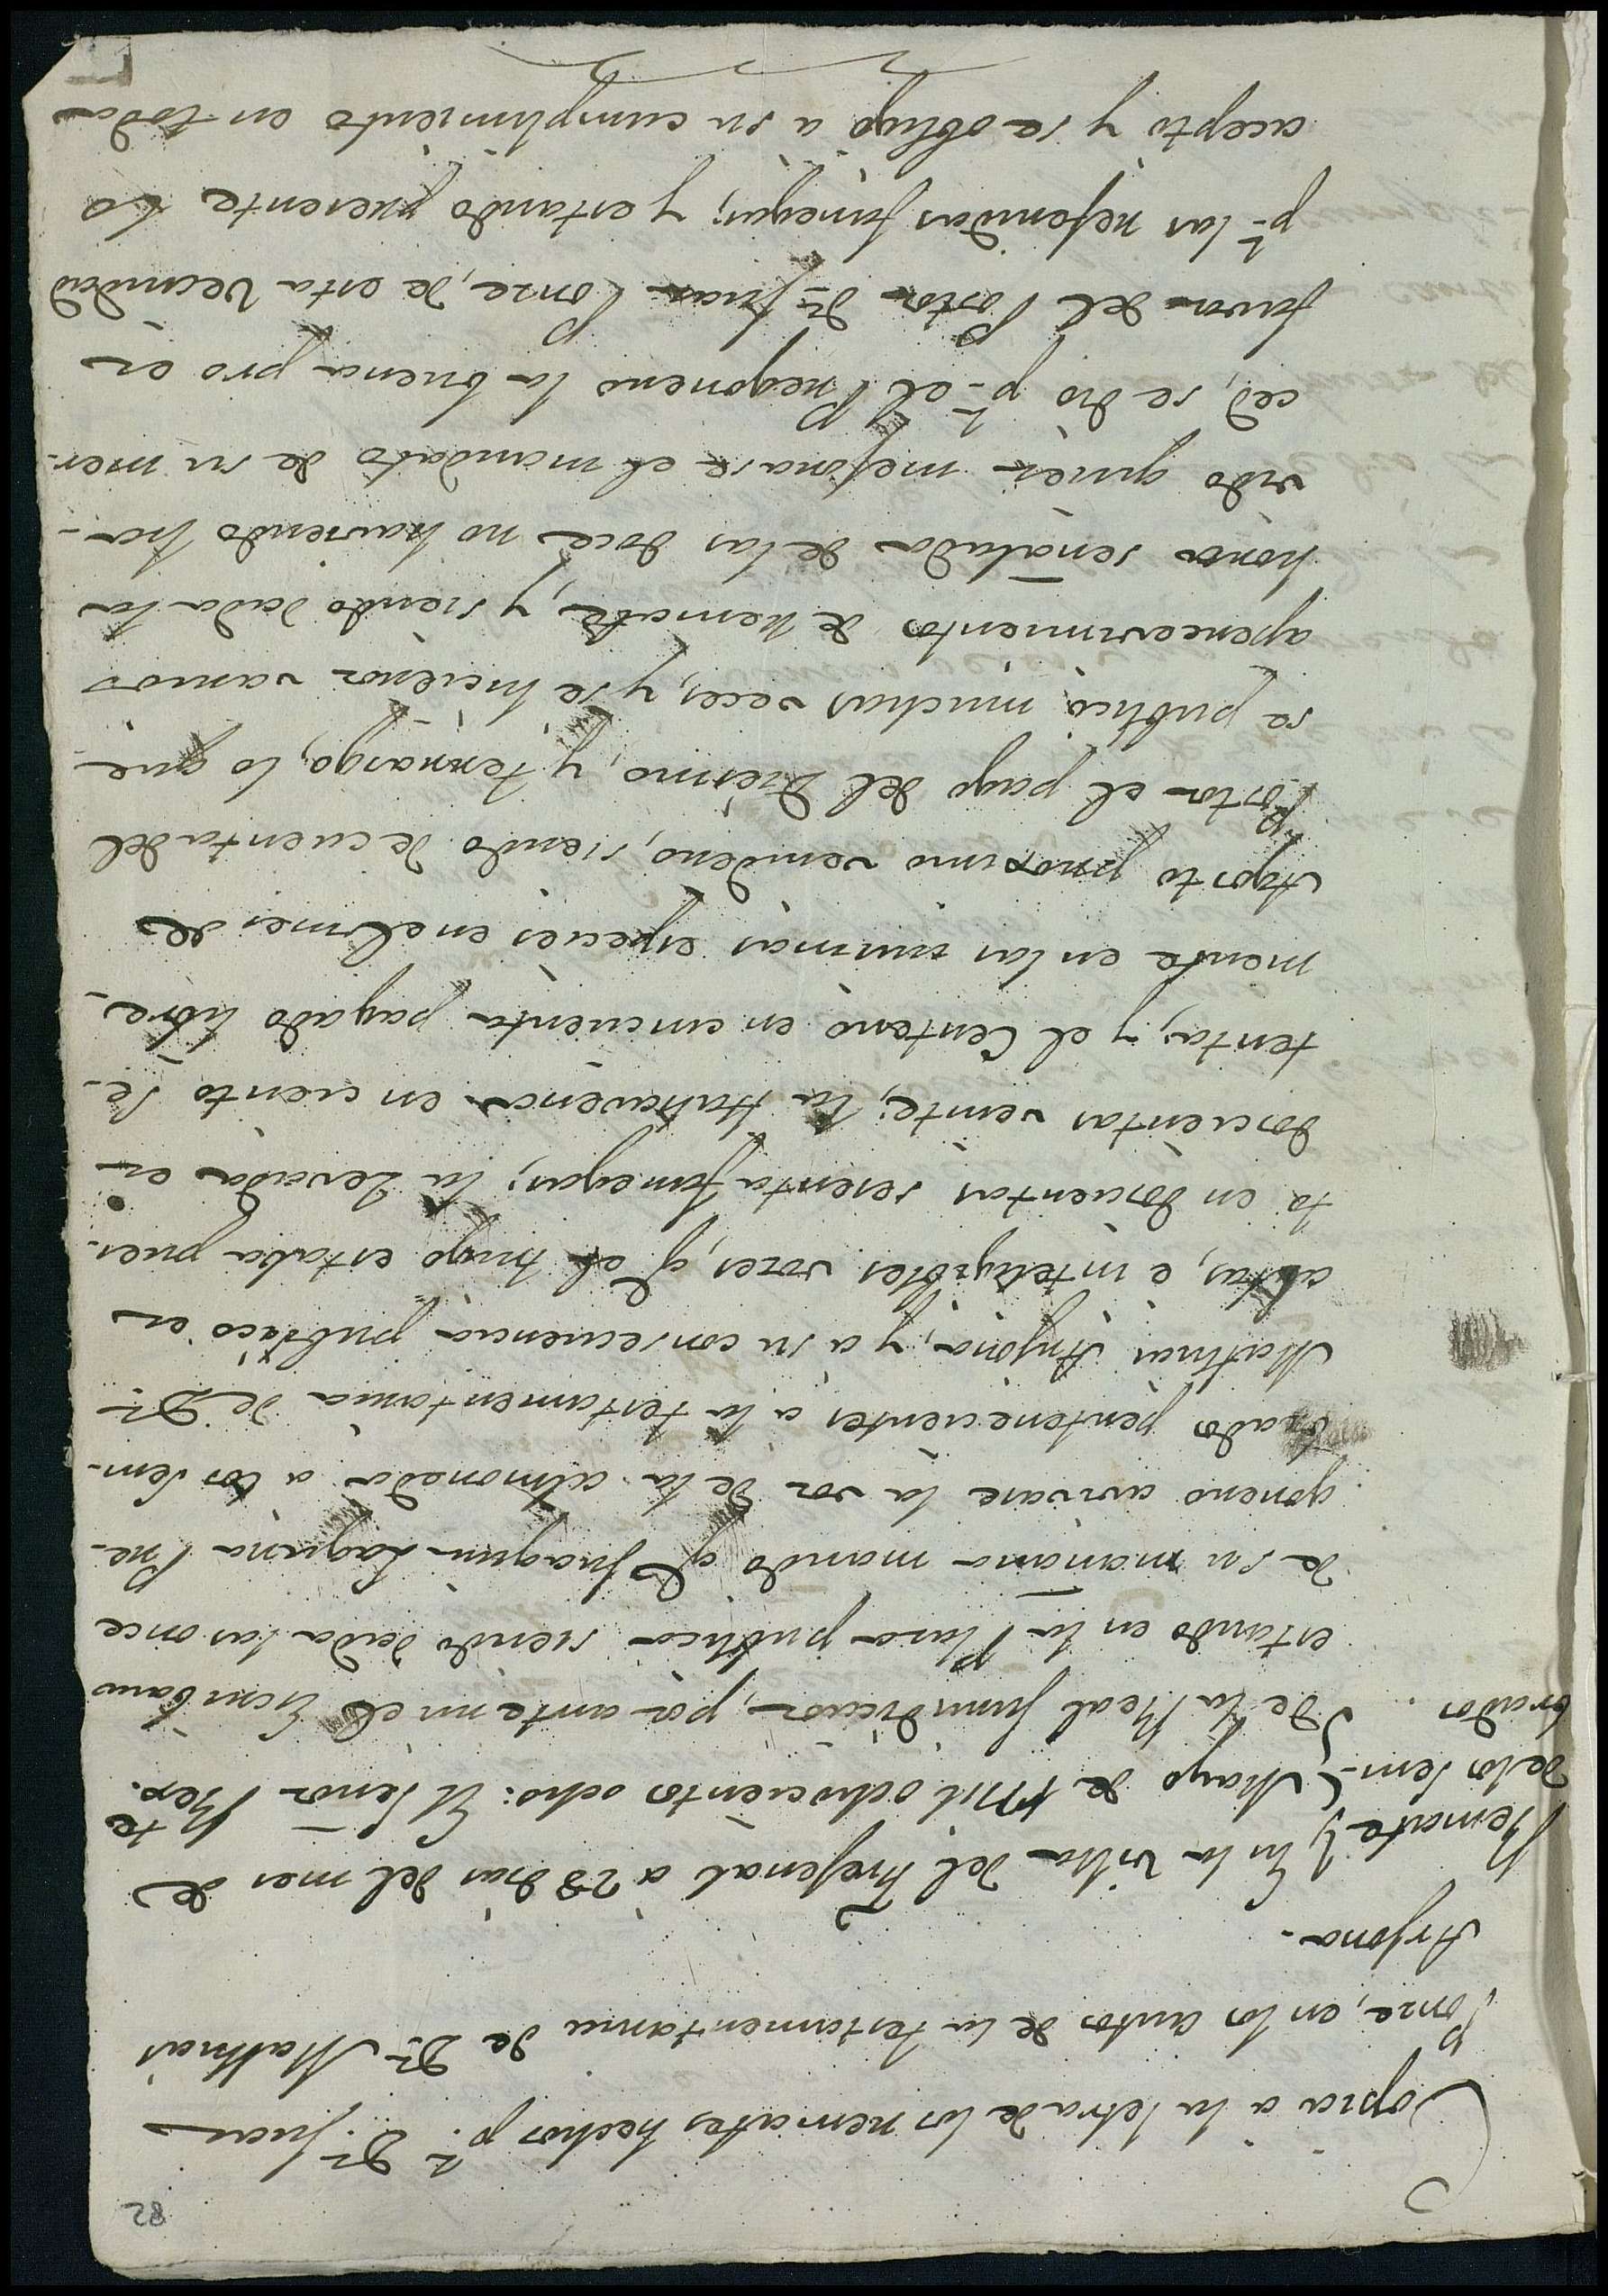 82
Copia a la letra de los remates hechos pr. Dn. Juan
Ponze, en los autos de la testamentaria de Dn. Mathias
Arjona.
Remate
de los sem-
brados
En la villa del Fresenal a 28 dias del mes de
Mayo de Mil ochocientos ocho: El Señor Rexte.
de la Real Jurisdiccion, por ante mi el Escribano
estando en la Plaza publica siendo dada las once
de su mañana mando q Joaquin Laguna Pre-
gonero avivase la voz de la almoneda a los sem-
brados pertenecientes a la testamentaria de Dn.
Mathias Arjona, y a su consecuencia publicó en
altas, e inteligibles vozes, q el trigo estaba pues-
to en doscientas sesenta fanegas; la Zevada en
doscientas veinte; la Habaena en ciento se-
tenta; y el Centeno en cincuenta pagado libre-
mente en las mismas especies en el mes de
Agosto proximo venidero, siendo de cuenta del
Postor el pago del Diesmo, y terrasgo, lo que
se publicó muchas veces, y se hicieron varios
apercevimientos de remate, y siendo dada la
hora señalada de las doce no haviendo ha-
vido quien mejorase el mandato de su mer-
ced, se dio pr. el Pregonero la buena pro en
favor del Postor Dn. Juan Ponze, de esta Vecindad
pr. las referidas fanegas; y estando presente lo
acepto y se obligó a su cumplimiento en toda